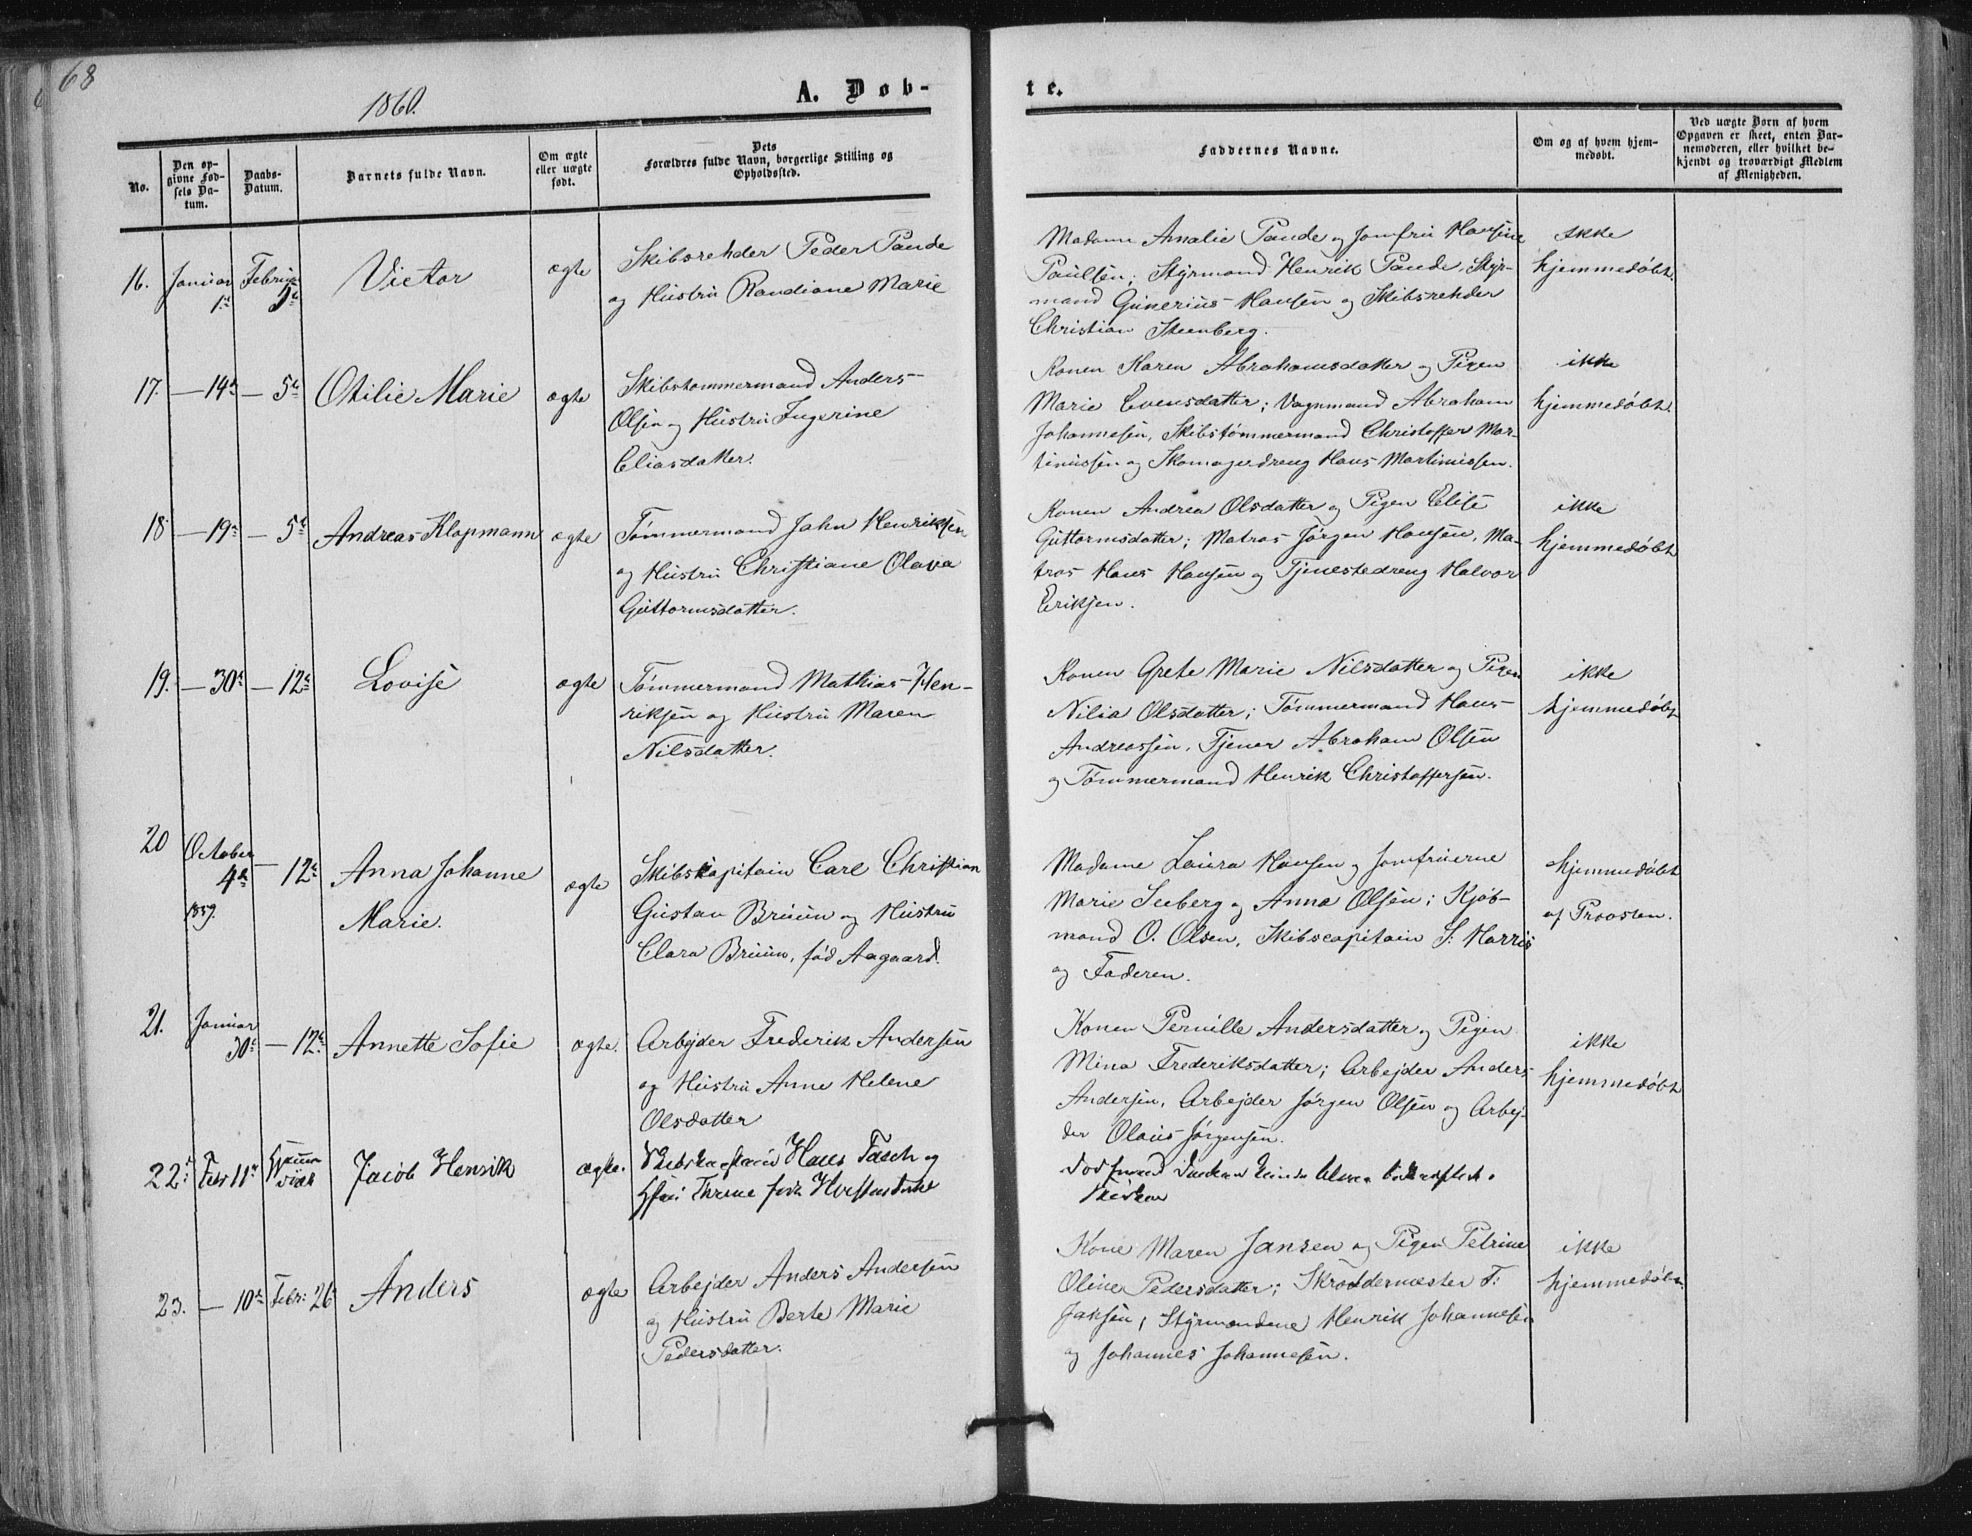 68
1860.
A. Døb-
te.
No.
Den op-
givne Fød-
sels Da-
tum.
Daabs-
Datum.
Barnets fulde Navn.
Om ægte
eller uægte
født.
Dets
Forældres fulde Navn, borgerlige Stilling og
Opholdssted.
Faddernes Navne.
Om og af hvem hjem-
medøbt.
Ved uægte Børn af hvem
Opgaven er skeet, enten Bar-
nemoderen, eller hvilket be-
kjendt og troværdigt Medlem
af Menigheden.
16.
Januar
1ste
Februar
5te
Victor
ægte
Skibsrehder Peder Paude
og Hustru Randiane Marie
Madam Amalie Paude og Jomfru Hansine
Paulsen; Styrmand Henrik Paude, Styr-
mand Gunerius Hansen og Skibsrehder
Christian Steenberg.
ikke
hjemmedøbt.
17.
— 14de
— 5te
Otilie Marie
ægte
Skibstømmermand Anders
Olsen og Hustru Ingerine
Eliasdatter.
Konen Karen Abrahamsdatter og Pigen
Marie Evensdatter; Vognmand Abraham
Johannesen, Skibstømmermand Christoffer Mar-
tinussen og Skomagerdreng Hans Martinussen.
ikke
hjemmedøbt.
18.
— 19de
— 5te
Andreas Klopmann
ægte
Tømmermand John Henriksen
og Hustru Christiane Olava
Guttormsdatter.
Konen Andrea Olsdatter og Pigen Elise
Guttormsdatter; Matros Jørgen Hansen, Ma-
tros Hans Hansen og Tjenestedreng Halvor
Eriksen.
ikke
hjemmedøbt
19.
— 30te
— 12te
Lovise
ægte
Tømmermand Mathias Hen-
riksen og Hustru Maren
Nilsdatter.
Konen Grete Marie Nilsdatter og Pigen
Nilia Olsdatter; Tømmermand Hans
Andreassen, Tjener Abraham Olsen
og Tømmermand Henrik Christoffersen.
ikke
hjemmedøbt
20
October
4de
1859.
— 12te
Anna Johanne
Marie.
ægte
Skibskapitain Carl Christian
Gustav Bruun og Hustru
Clara Bruun, fød Aagaard.
Madame Laura Hansen og Jomfruerne
Marie Seeberg og Anna Olsen; Kjøb-
mand O. Olsen, Skibscapitain S. Harris
og Faderen.
hjemmedøbt
af Provsten.
21.
Januar
30te
— 12te
Annette Sofie
ægte.
Arbejder Frederik Andersen
og Hustru Anne Helene
Olsdatter
Konen Pernille Andersdatter og Pigen
Mina Frederiksdatter; Arbejder Anders
Andersen, Arbejder Jørgen Olsen og Arbej-
der Olaus Jørgensen.
ikke
hjemmedøbt
22.
Febr 11te
Jacob Henrik
ægte.
Hans Fasch og
23.
— 10de
Febr: 26
Anders
ægte
Arbejder Anders Andersen
og Hustru Berte Marie
Pedersdatter.
Kone Maren Jansen og Pigen Petrine
Oline Pedersdatter; Skræddermester F:
Jansen; Styrmændene Henrik Johannesen
og Johannes Johannesen.
ikke
hjemmedøbt